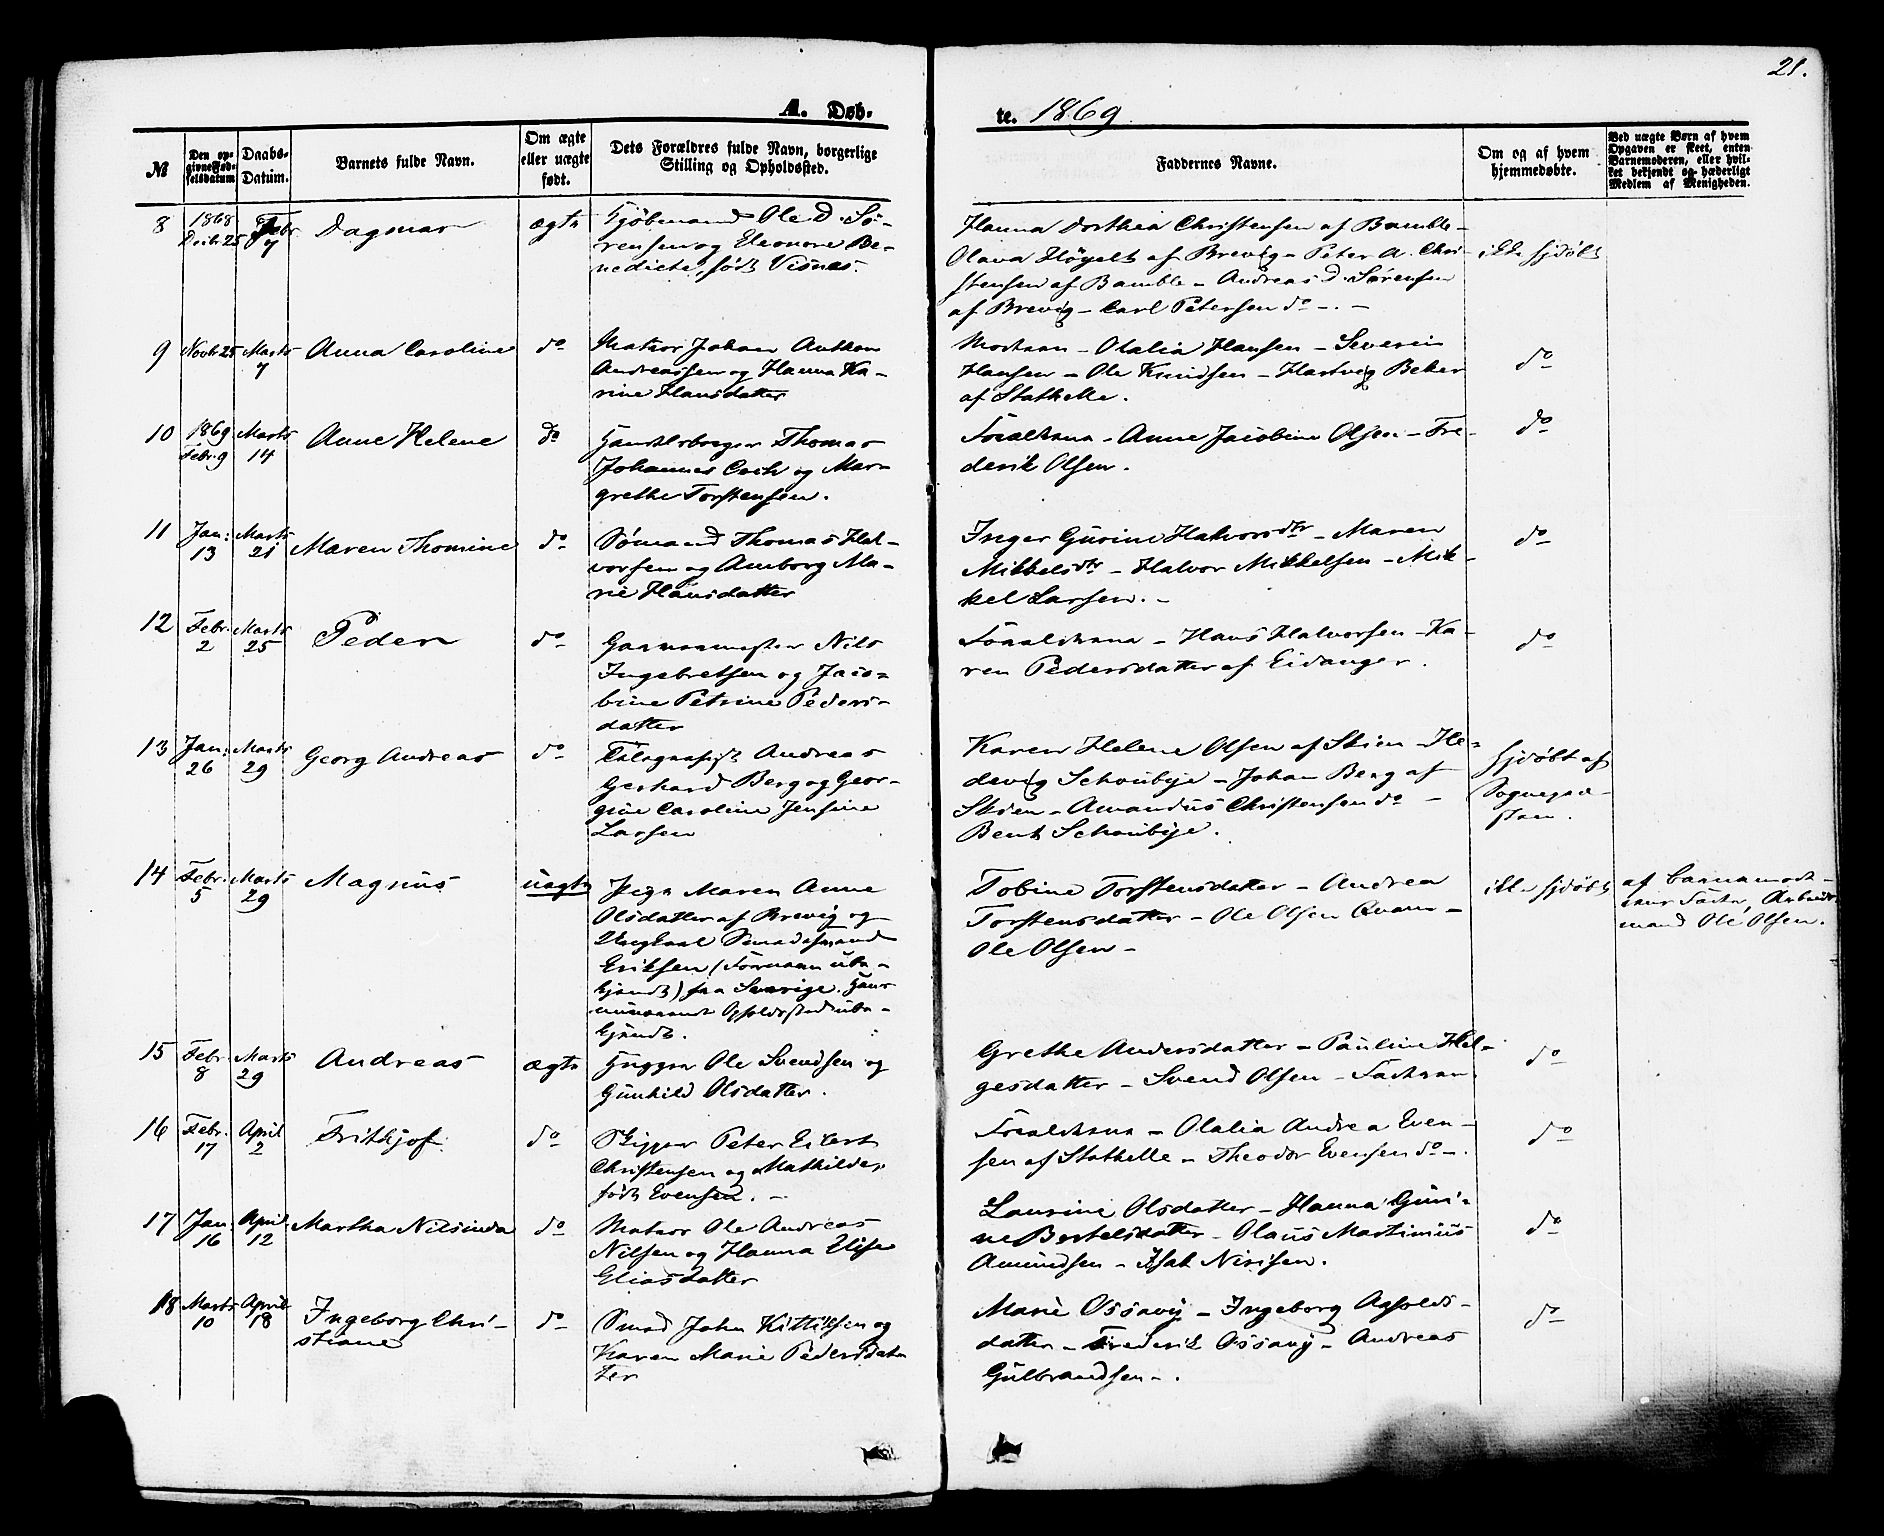 21.
A. Døb-
te. 1869
№
Den op-
givne Fød-
selsdatum
Daabs-
Datum.
Barnets fulde Navn.
Om ægte
eller uægte
født.
Dets Forældres fulde Navn, borgerlige
Stilling og Opholdssted.
Faddernes Navne.
Om og af hvem
hjemmedøbte.
Ved uægte Børn af hvem
Opgaven er skeet, enten
Barnemoderen, eller hvil-
ket bekjendt og hæderligt
Medlem af Menigheden.
8
1868
Decbr 25
Febr
7
Dagmar
ægte
Kjøbmand Ole D. Sö-
rensen og Eleonore Be-
nedicte, født Visnes.
Hanna Dorthea Christensen af Bamble -
Olava Höyelt af Brevig - Peter A. Chri-
stensen af Bamble - Andreas D. Sørensen
af Brevig - Carl Petersen do -.-
ikke hjdøbt
9
Novbr 25
Marts
7
Anna Caroline
do
Matros Johan Anthon
Andreassen og Hanna Ka-
rine Hansdatter
Moderen - Olalia Hansen - Severin
Hansen - Ole Knudsen - Hartvig Beker
af Stathelle.
do
10
1869
Febr. 9
Marts
14
Anne Helene
do
Handelsborger Thomas
Johannes Cock og Mar-
grethe Torstensen.
Forældrene - Anne Jacobine Olsen - Fre-
derik Olsen.
do
11
Jan:
13
Marts
21
Maren Thomine
do
Sømand Thomas Hal-
vorsen og Anborg Ma-
rie Hansdatter
Inger Gurine Halvorsdtr - Maren
Mikkelsdtr - Halvor Mikkelsen - Mik-
kel Larsen. -
do
12
Febr.
2
Marts
25
Peder
do
Garvermester Nils
Ingebretsen og Jaco-
bine Petrine Peders-
datter
Forældrene - Hans Halvorsen - Ka-
ren Pedersdatter af Eidanger.
do
13
Jan:
26
Marts
29
Georg Andreas
do
Telegrafist Andreas
Gerhard Berg og Geor-
gine Caroline Jensine
Larsen
Karen Helene Olsen af Skien - He-
devig Schoubye - Johan Berg af
Skien - Amandus Christensen do -
Bent Schoubye.
Hjdøbt af
Sognepræ-
sten.
14
Febr.
5
Marts
29
Magnus
uægte
Pige Maren Anne
Olsdatter af Brevig og
Ungkarl Smedesvend
Eriksen (Fornavn ube-
kjendt) fra Sverige. Hans
nuværende Opholdssted ube-
kjendt.
Tobine Torstensdatter - Andrea
Torstensdatter - Ole Olsen Qvern -
Ole Olsen -
ikke hjdøbt
af Barnemode-
rens Fader, Arbeids-
mand Ole Olsen.
15
Febr
8
Marts
29
Andreas
ægte
Hugger Ole Svendsen og
Gunhild Olsdatter.
Grethe Andersdatter - Pauline Hel-
gesdatter - Svend Olsen - Faderen
do
16
Febr.
17
April
2
Frithjof.
do
Skipper Peter Eilert
Christensen og Mathilde,
født Evensen. -
Forældrene - Olalia Andrea Even-
sen af Stathelle - Theodor Evensen do -.
do
17
Jan.
16
April
12
Martha Nilsinda
do
Matros Ole Andreas
Nilsen og Hanna Elise
Eliasdatter
Laurine Olsdatter - Hanna Guri-
ne Bertelsdatter - Olaus Martinius
Amundsen - Isak Nirisen.
do
18
Marts
10
April
18
Ingeborg Chri-
stiane
do
Smed John Kittilsen og
Karen Marie Pedersdat-
ter
Marie Ossavy - Ingeborg Asfolds-
datter - Frederik Ossavy - Andreas
Gulbrandsen -.
do